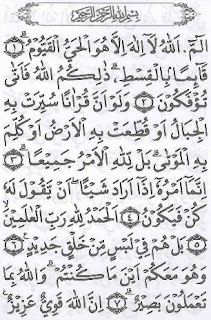 بِسْمِ اللّٰهِ الرَّحْمٰنِ الرَّحِيْمِ
الٓمّٓ ۚ اَللّٰهُ لَآ اِلٰهَ اِلَّا هُوَ الْحَيُّ الْقَيُّوْمُ ۝١
قَآئِمًا بِالْقِسْطِ ۚ ذٰلِكُمُ اللّٰهُ فَاَنّٰى
تُؤْفَكُوْنَ ۝٢ وَلَوْ اَنَّ قُرْاٰنًا سُيِّرَتْ بِهِ
الْجِبَالُ اَوْ قُطِّعَتْ بِهِ الْاَرْضُ اَوْ كُلِّمَ
بِهِ الْمَوْتٰى ۚ بَلْ لِلّٰهِ الْاَمْرُ جَمِيْعًا ۝٣
اِنَّمَآ اَمْرُهٗٓ اِذَآ اَرَادَ شَيْئًا اَنْ يَقُوْلَ لَهٗ
كُنْ فَيَكُوْنُ ۝٤ اَلْحَمْدُ لِلّٰهِ رَبِّ الْعٰلَمِيْنَ
۝٥ بَلْ هُمْ فِيْ لَبْسٍ مِنْ خَلْقٍ جَدِيْدٍ ۝٦
وَهُوَ مَعَكُمْ اَيْنَ مَا كُنْتُمْ ۚ وَاللّٰهُ بِمَا
تَعْمَلُوْنَ بَصِيْرٌ ۝٧ اِنَّ اللّٰهَ قَوِيٌّ عَزِيْزٌ